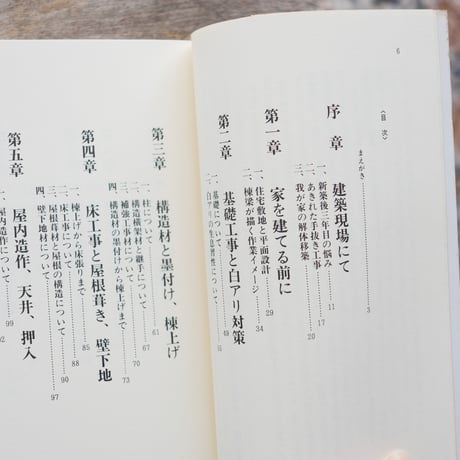 6
〈目次〉
まえがき……3
序章 建築現場にて
一、新築後三年目の悩み……11
二、あきれた手抜き工事……17
三、我が家の解体移築……20
第一章 家を建てる前に
一、住宅敷地と平面設計……29
二、棟梁が描く作業イメージ……34
第二章 基礎工事と白アリ対策
一、基礎について
二、白アリの生息習性について……49
第三章 構造材と墨付け、棟上げ
一、柱について……61
二、構造横架材と継手について……67
三、補強工事材について……70
四、構造材の墨付けから棟上げまで……73
第四章 床工事と屋根葺き、壁下地
一、棟上げから床張りまで……85
二、床工事について……88
三、屋根葺材と屋根の構造について……90
四、壁下地材について……97
第五章 屋内造作、天井、押入
一、屋内造作について……99